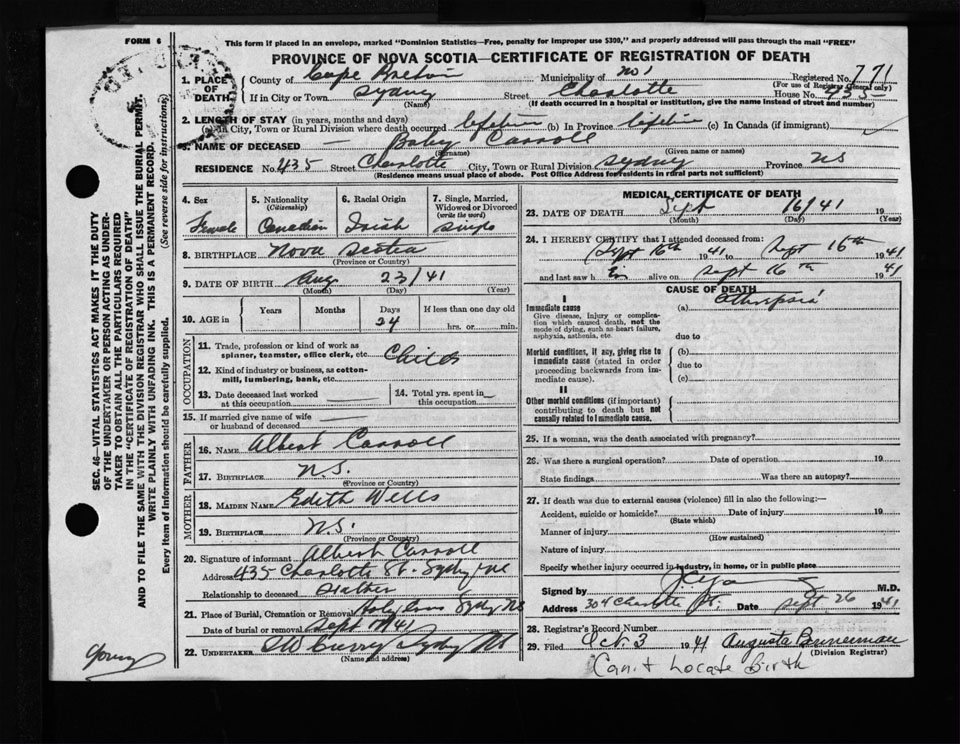 FORM 6
This form if placed in an envelope, marked "Dominion Statistics—Free, penalty for improper use $300," and properly addressed will pass through the mail "FREE"
PROVINCE OF NOVA SCOTIA—CERTIFICATE OF REGISTRATION OF DEATH
1. PLACE OF DEATH
County of Cape Breton Municipality of No 1 Registered No. 771
(For use of Registrar General only)
If in City or Town Sydney Street Charlotte House No. 435
(Name) (If death occurred in a hospital or institution, give the name instead of street and number)
2. LENGTH OF STAY (in years, months and days)
(a) In City, Town or Rural Division where death occurred lifetime (b) In Province lifetime (c) In Canada (if immigrant)
3. NAME OF DECEASED — Baby Carroll
(Surname) (Given name or names)
RESIDENCE No. 435 Street Charlotte City, Town or Rural Division Sydney Province NS
(Residence means usual place of abode. Post Office Address for residents in rural parts not sufficient)
4. Sex 5. Nationality (Citizenship) 6. Racial Origin 7. Single, Married, Widowed or Divorced (write the word)
Female Canadian Irish Single
8. BIRTHPLACE Nova Scotia
(Province or Country)
9. DATE OF BIRTH Aug 23/41
(Month) (Day) (Year)
10. AGE in Years Months Days If less than one day old
24 hrs. or min.
OCCUPATION
11. Trade, profession or kind of work as spinner, teamster, office clerk, etc. Child
12. Kind of industry or business, as cotton-mill, lumbering, bank, etc.
13. Date deceased last worked at this occupation 14. Total yrs. spent in this occupation
15. If married give name of wife or husband of deceased
FATHER
16. NAME Albert Carroll
17. BIRTHPLACE N.S.
(Province or Country)
MOTHER
18. MAIDEN NAME Edith Wells
19. BIRTHPLACE N.S.
(Province or Country)
20. Signature of informant Albert Carroll
Address 435 Charlotte St. Sydney NS
Relationship to deceased Father
21. Place of Burial, Cremation or Removal Holy Cross Sydney NS
Date of burial or removal Sept 17/41
22. UNDERTAKER Curry Sydney NS
(Name and address)
MEDICAL CERTIFICATE OF DEATH
23. DATE OF DEATH Sept 16/41 19
(Month) (Day) (Year)
24. I HEREBY CERTIFY that I attended deceased from:
Sept 16th 1941 to Sept 16th 1941
and last saw h alive on Sept 16th 1941
CAUSE OF DEATH
I
Immediate cause (a)
Give disease, injury or complication which caused death, not the mode of dying, such as heart failure, asphyxia, asthenia, etc.
due to
Morbid conditions, if any, giving rise to immediate cause (stated in order proceeding backwards from immediate cause).
(b)
due to
(c)
II
Other morbid conditions (if important) contributing to death but not causally related to immediate cause.
25. If a woman, was the death associated with pregnancy?
26. Was there a surgical operation? Date of operation 19
State findings Was there an autopsy?
27. If death was due to external causes (violence) fill in also the following:—
Accident, suicide or homicide? Date of injury 19
(State which)
Manner of injury
(How sustained)
Nature of injury
Specify whether injury occurred in industry, in home, or in public place
Signed by M.D.
Address 304 Charlotte St. Date Sept 26 1941
28. Registrar's Record Number
29. Filed Oct 3 1941 Augusta Bannerman
(Division Registrar)
Can't Locate Birth
SEC. 46—VITAL STATISTICS ACT MAKES IT THE DUTY
OF THE UNDERTAKER OR PERSON ACTING AS UNDER-
TAKER TO OBTAIN ALL THE PARTICULARS REQUIRED
IN THE "CERTIFICATE OF REGISTRATION OF DEATH"
AND TO FILE THE SAME WITH THE DIVISION REGISTRAR WHO SHALL ISSUE THE BURIAL PERMIT.
WRITE PLAINLY WITH UNFADING INK. THIS IS A PERMANENT RECORD.
Every item of information should be carefully supplied. (See reverse side for instructions)